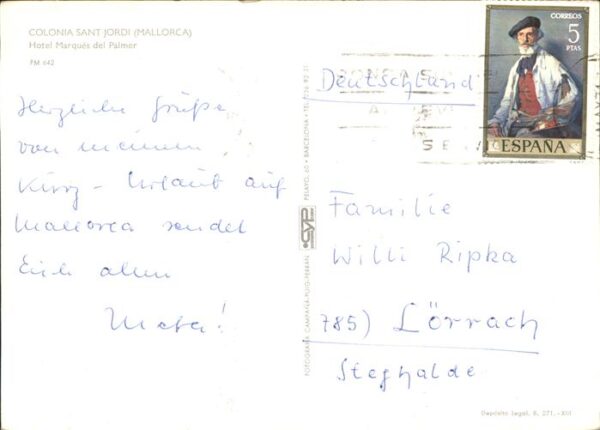 COLONIA SANT JORDI (MALLORCA)
Hotel Marqués del Palmer
PM 642
Herzliche Grüße
von meinem
Kurz-Urlaub auf
Mallorca sendet
Euch allen
Meta!
FOTOGRAFIA CAMPAÑA-PUIG-FERRAN
CYP
PELAYO, 60 • BARCELONA • TEL.
CORREOS
5
PTAS
ESPAÑA
Deutschland
Familie
Willi Ripka
785) Lörrach
Steghalde
Depósito Legal, B. 271.-XIII